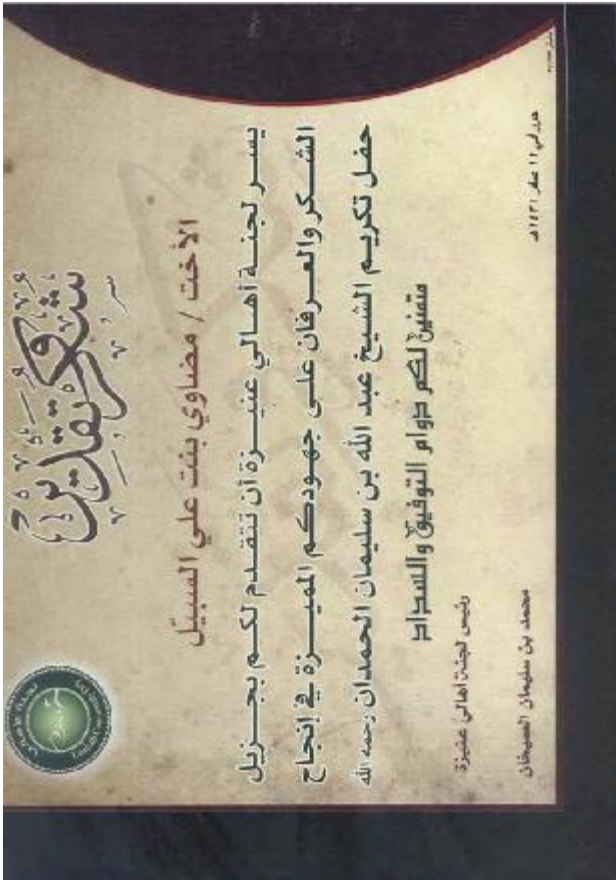 شكر وتقدير
الأخت / مضاوي بنت علي السبيّل
يسر لجنة أهالي عنيزة أن تتقدم لكم بجزيل
الشكر والعرفان على جهودكم المميزة في إنجاح
حفل تكريم الشيخ عبد الله بن سليمان الحمدان رحمه الله
متمنين لكم دوام التوفيق والسداد
رئيس لجنة أهالي عنيزة
محمد بن سليمان الصيخان
حرر في ١١ صفر ١٤٣١هـ